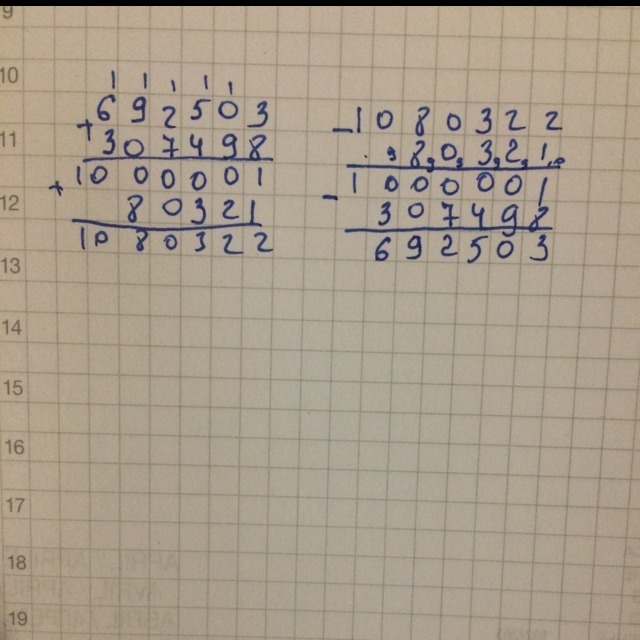 9
10
11
12
13
14
15
16
17
18
19
1 1 1 1 1
692503
+
307498
1000001
+
80321
1080322
- 1080322
80321
1000001
-
307498
692503